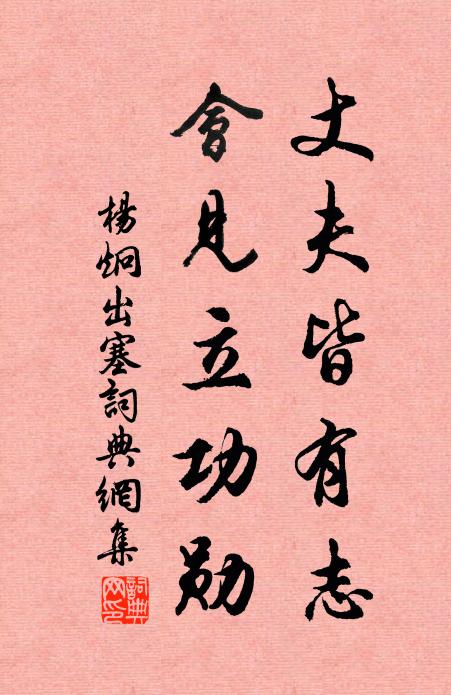 丈夫皆有志
會見立功勛
楊炯出塞詞典網集
詞典網印